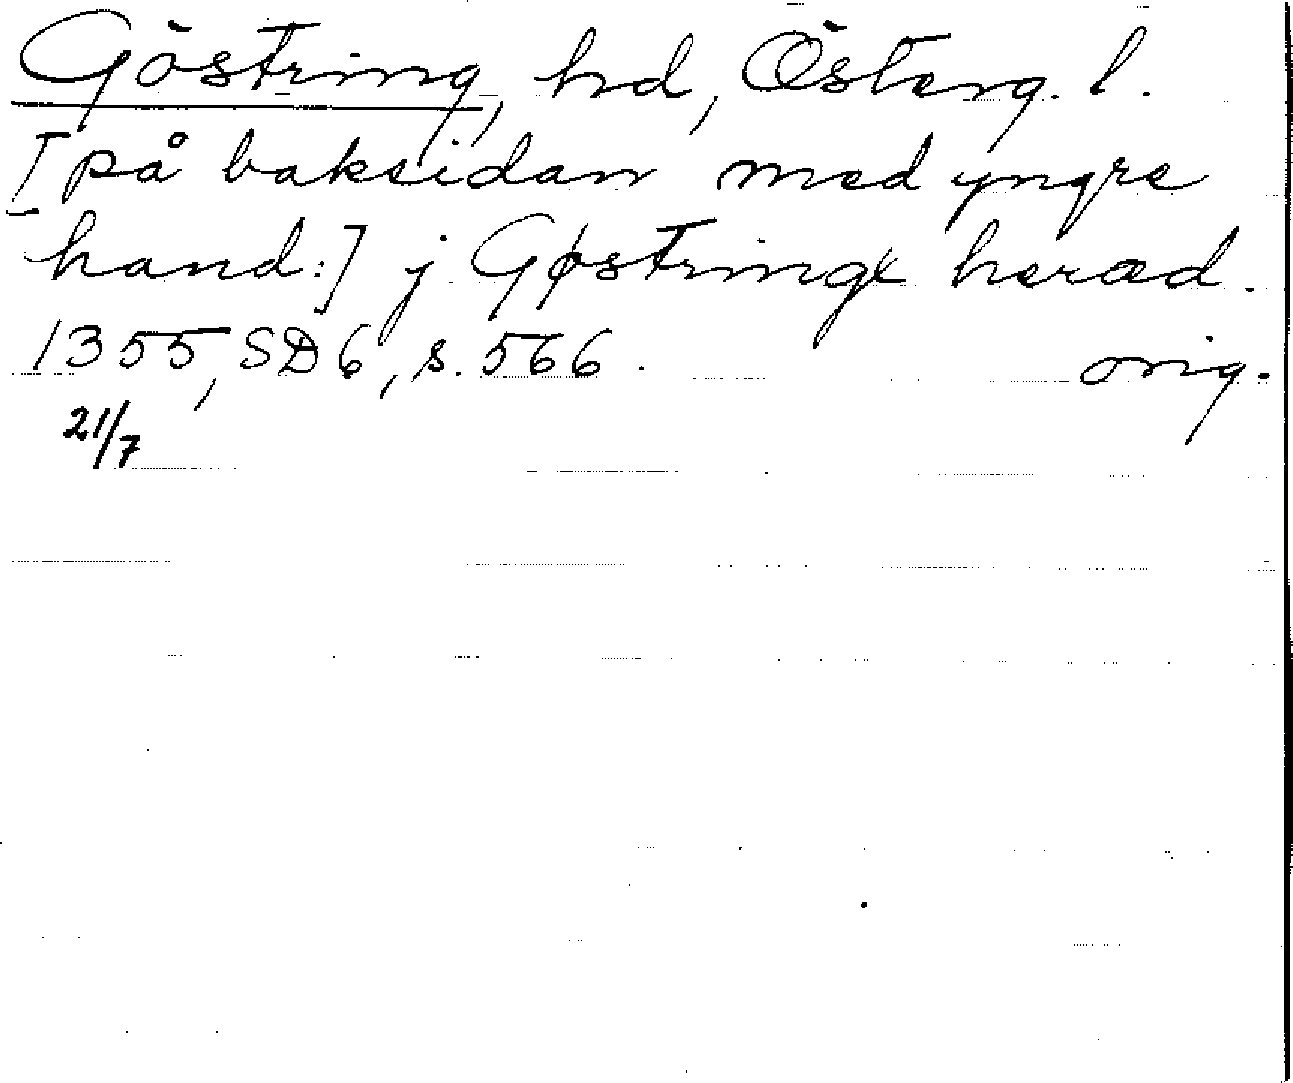 Göstring, hd, Österg. l.
[på baksidan med yngre
hand:] j Gøstringx heræd.
1355, SD6, s. 566. orig.
21/7